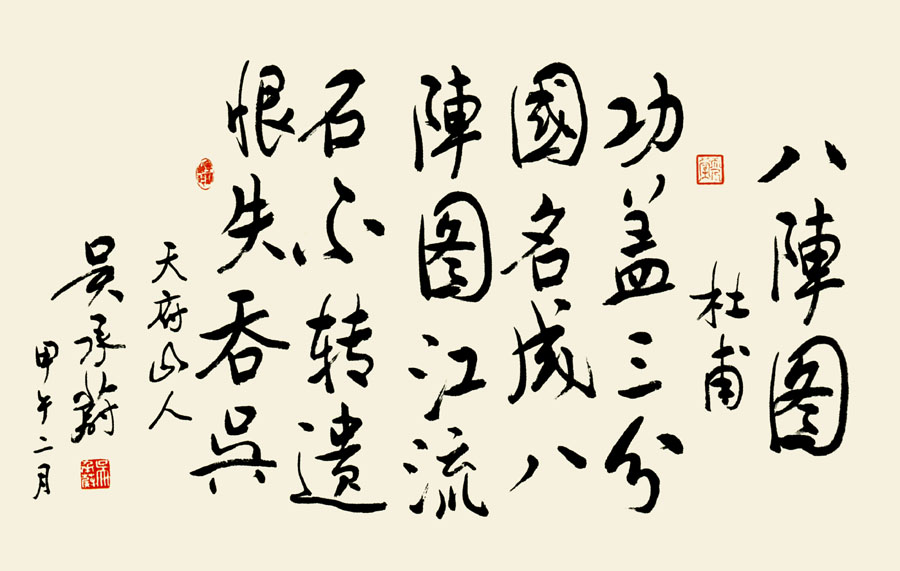 八陣图
杜甫
功盖三分
國名成八
陣图江流
石不转遗
恨失吞吳
天府山人
吴承蔚
甲午二月